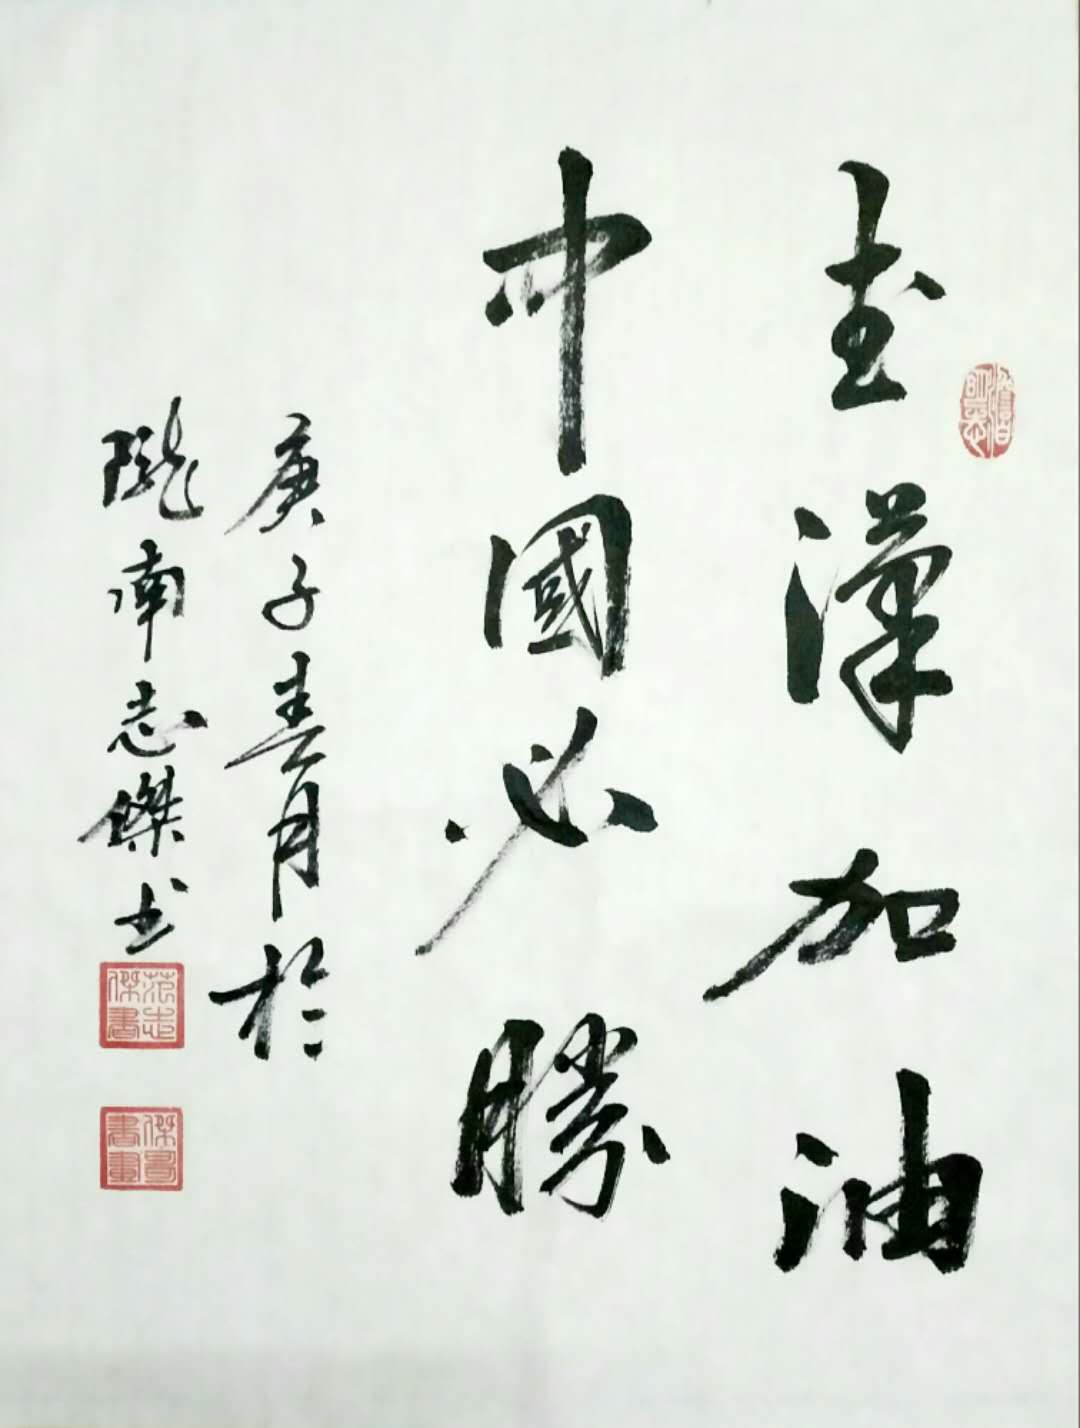 武漢加油
中國必勝
庚子春月於
隴南志傑书
范志傑書
傑印書畫